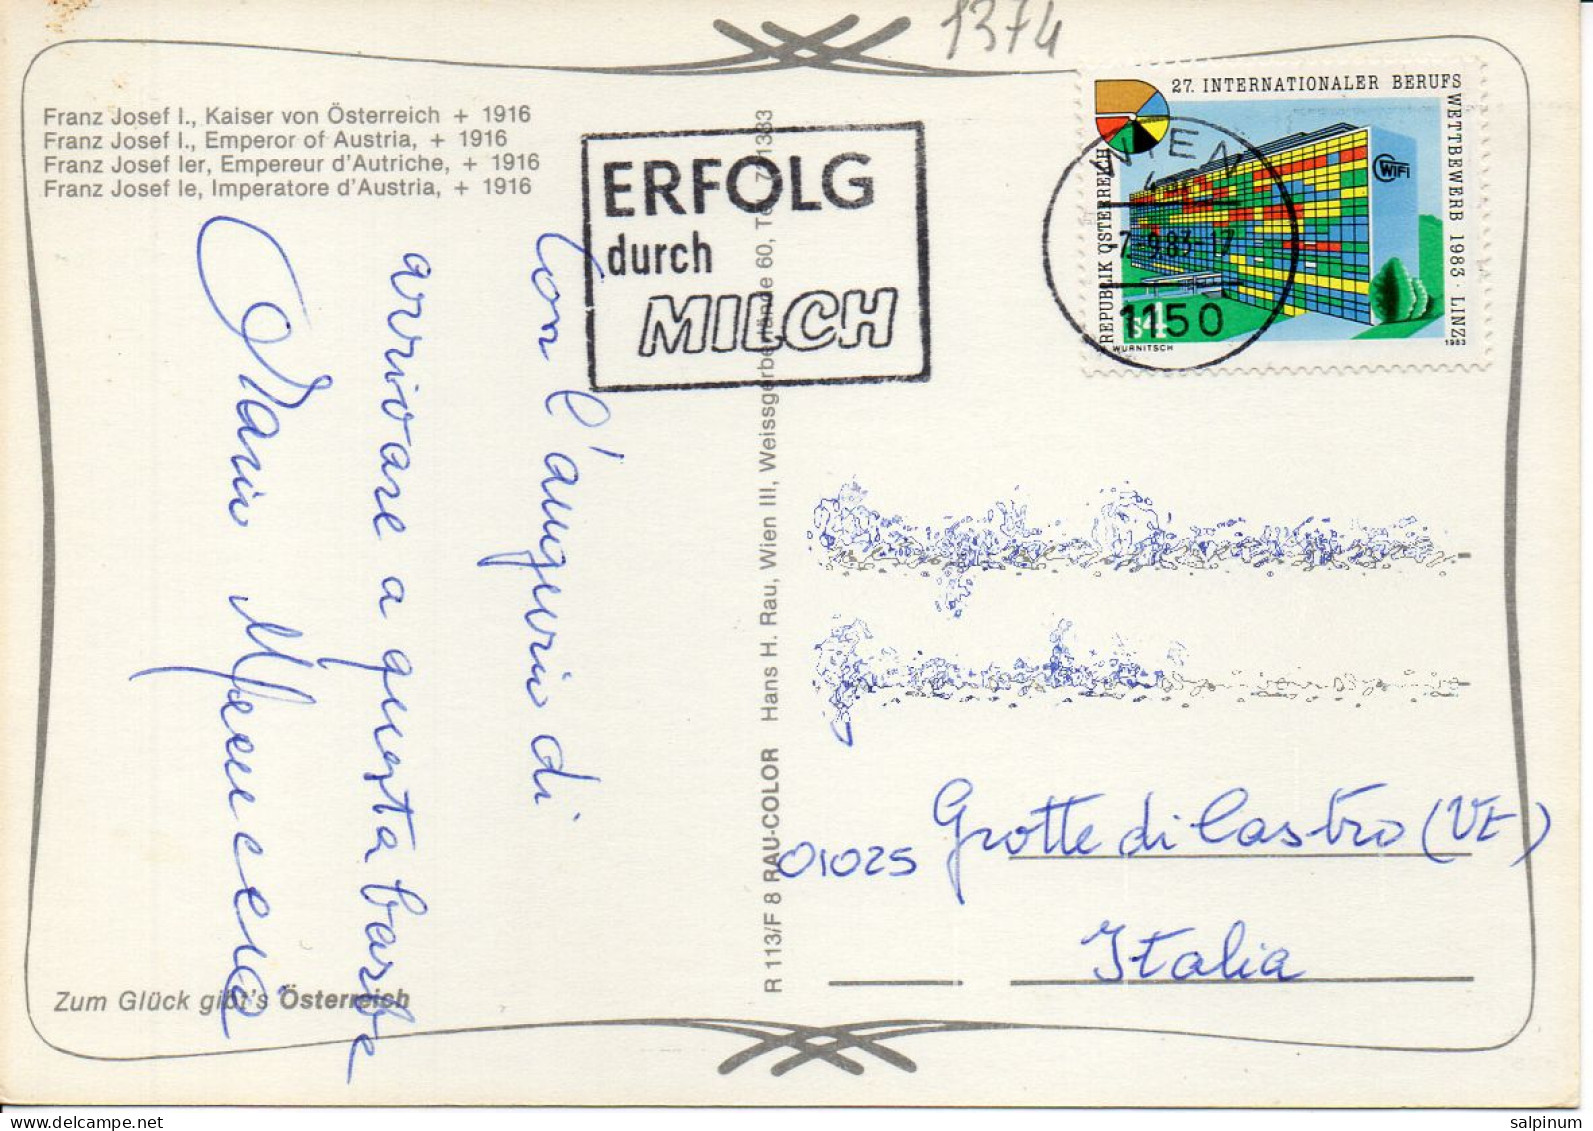 1374
Franz Josef I., Kaiser von Österreich + 1916
Franz Josef I., Emperor of Austria, + 1916
Franz Josef Ier, Empereur d'Autriche, + 1916
Franz Josef Ie, Imperatore d'Austria, + 1916
ERFOLG
durch
MILCH
27. INTERNATIONALER BERUFS
WETTBEWERB 1983 · LINZ
REPUBLIK ÖSTERREICH
WIFI
S4
WURNITSCH
1983
WIEN
-7.-9.83-17
1150
Con l'augurio di
arrivare a questa barba
Mario
R 113/F 8 RAU-COLOR Hans H. Rau, Wien III, Weissgerberlände 60, Tel.
01025 Grotte di Castro (VT)
Italia
Zum Glück gibt's Österreich
salpinum